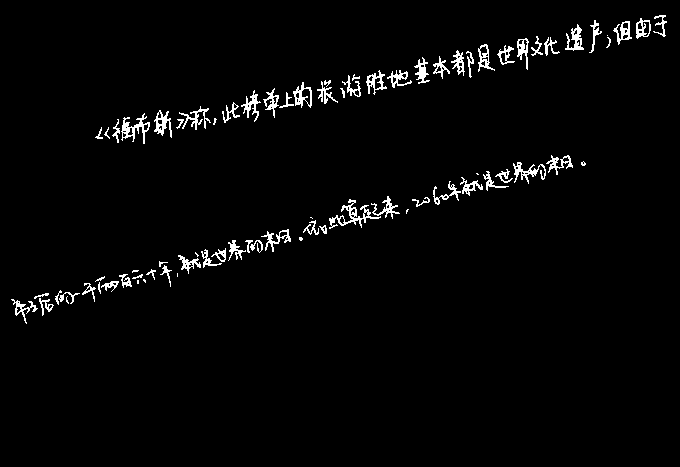 《福布斯》称,此榜单上的旅游胜地基本都是世界文化遗产,但由于
年之后的一千两百六十年,就是世界的末日。依此算起来,2060年就是世界的末日。